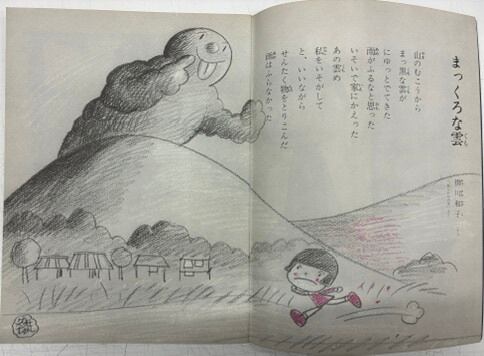 まっくろな雲
山のむこうから
まっ黒な雲が
にゅっとでてきた
雨がふるなと思った
いそいで家にかえった
あの雲め
私をいそがして
と、いいながら
せんたく物をとりこんだ
雨はふらなかった